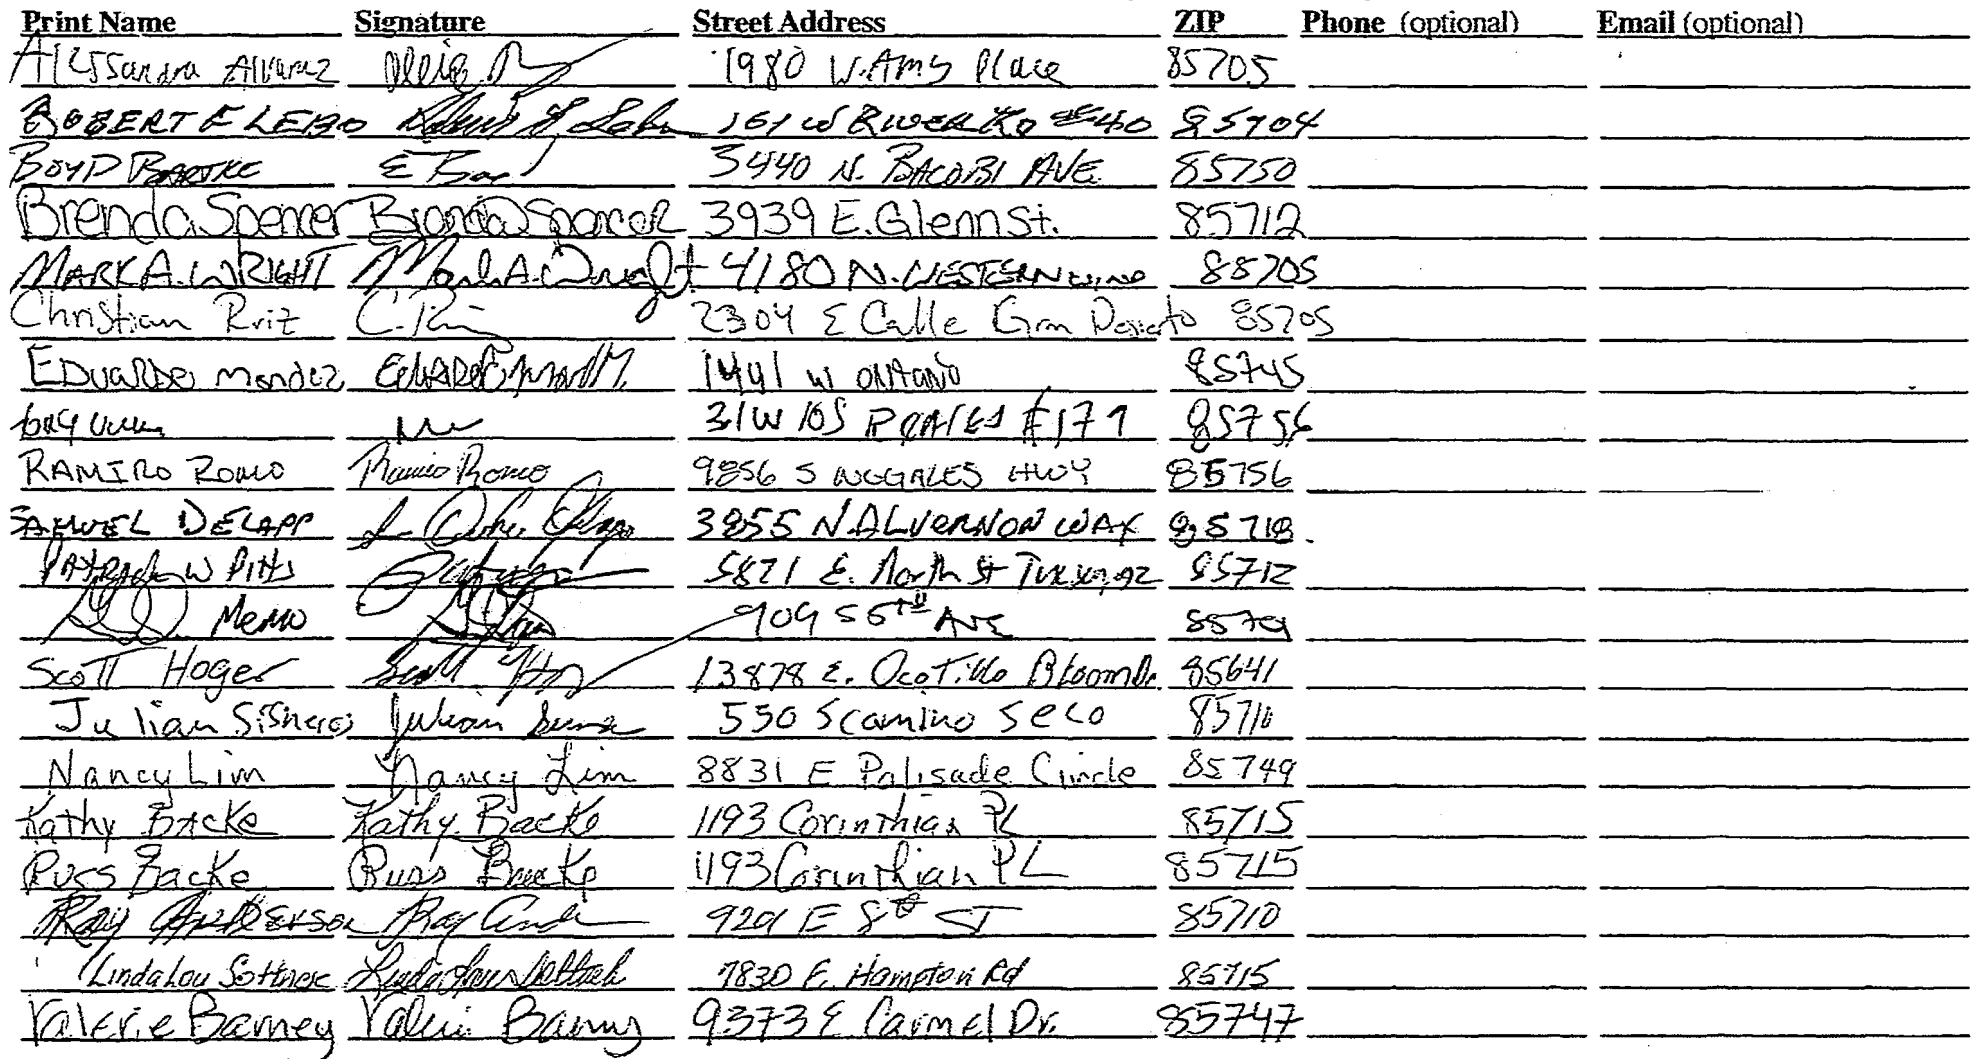 Print Name Signature Street Address ZIP Phone (optional) Email (optional)
Alessandra Alvarez 1980 W. Amy Place 85705
ROBERT E LEBO 161 W RIVER RD #40 85704
BOYD 3440 N. BACOBI AVE 85750
Brenda Spencer Brenda Spencer 3939 E. Glenn St. 85712
MARK A. WRIGHT Mark A. Wright 4180 N. WESTERN WIND 88705
Christian Ruiz C. 2304 E Calle Gran Desierto 85705
EDUARDO Mendez 1441 W ONTARIO 85745
31 W LOS REALES #179 85756
RAMIRO ROMO Ramiro Romo 9856 S NOGALES HWY 85756
SAMUEL DELAPP 3855 N ALVERNON WAY 85718
PATRICK W Pitts 5871 E. North St Tucson, AZ 85712
Memo 909 S 6TH AVE 85701
Scott Hoger Scott 13878 E. Ocotillo Bloom Dr. 85641
Julian Sisneros Julian 550 S camino seco 85710
Nancy Lim Nancy Lim 8831 E Palisade Circle 85749
Kathy Backe Kathy Backe 1193 Corinthian PL 85715
Russ Backe Russ Backe 1193 Corinthian PL 85715
Ray ANDERSON Ray 9201 E 8th ST 85710
Linda Lou 7830 E. Hampton Rd 85715
Valerie Barney Valerie Barney 9373 E. Carmel Dr. 85747